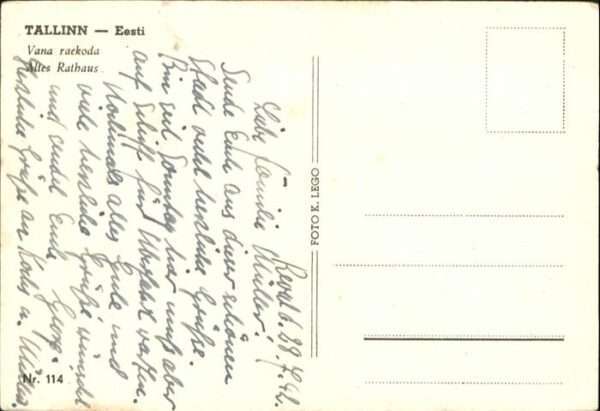 TALLINN — Eesti
Vana raekoda
Altes Rathaus
Reval
Liebe Familie Müller!
Sende Euch aus dieser schönen
Stadt recht herzliche Grüße.
Bin seit Sonntag hier muß aber
auf Schiff für Überfahrt warten.
Nochmals alles Gute und
viele herzliche Grüße wünscht
und sendet Euch Georg.
Herzliche Grüße an u.
FOTO K. LEGO
Nr. 114